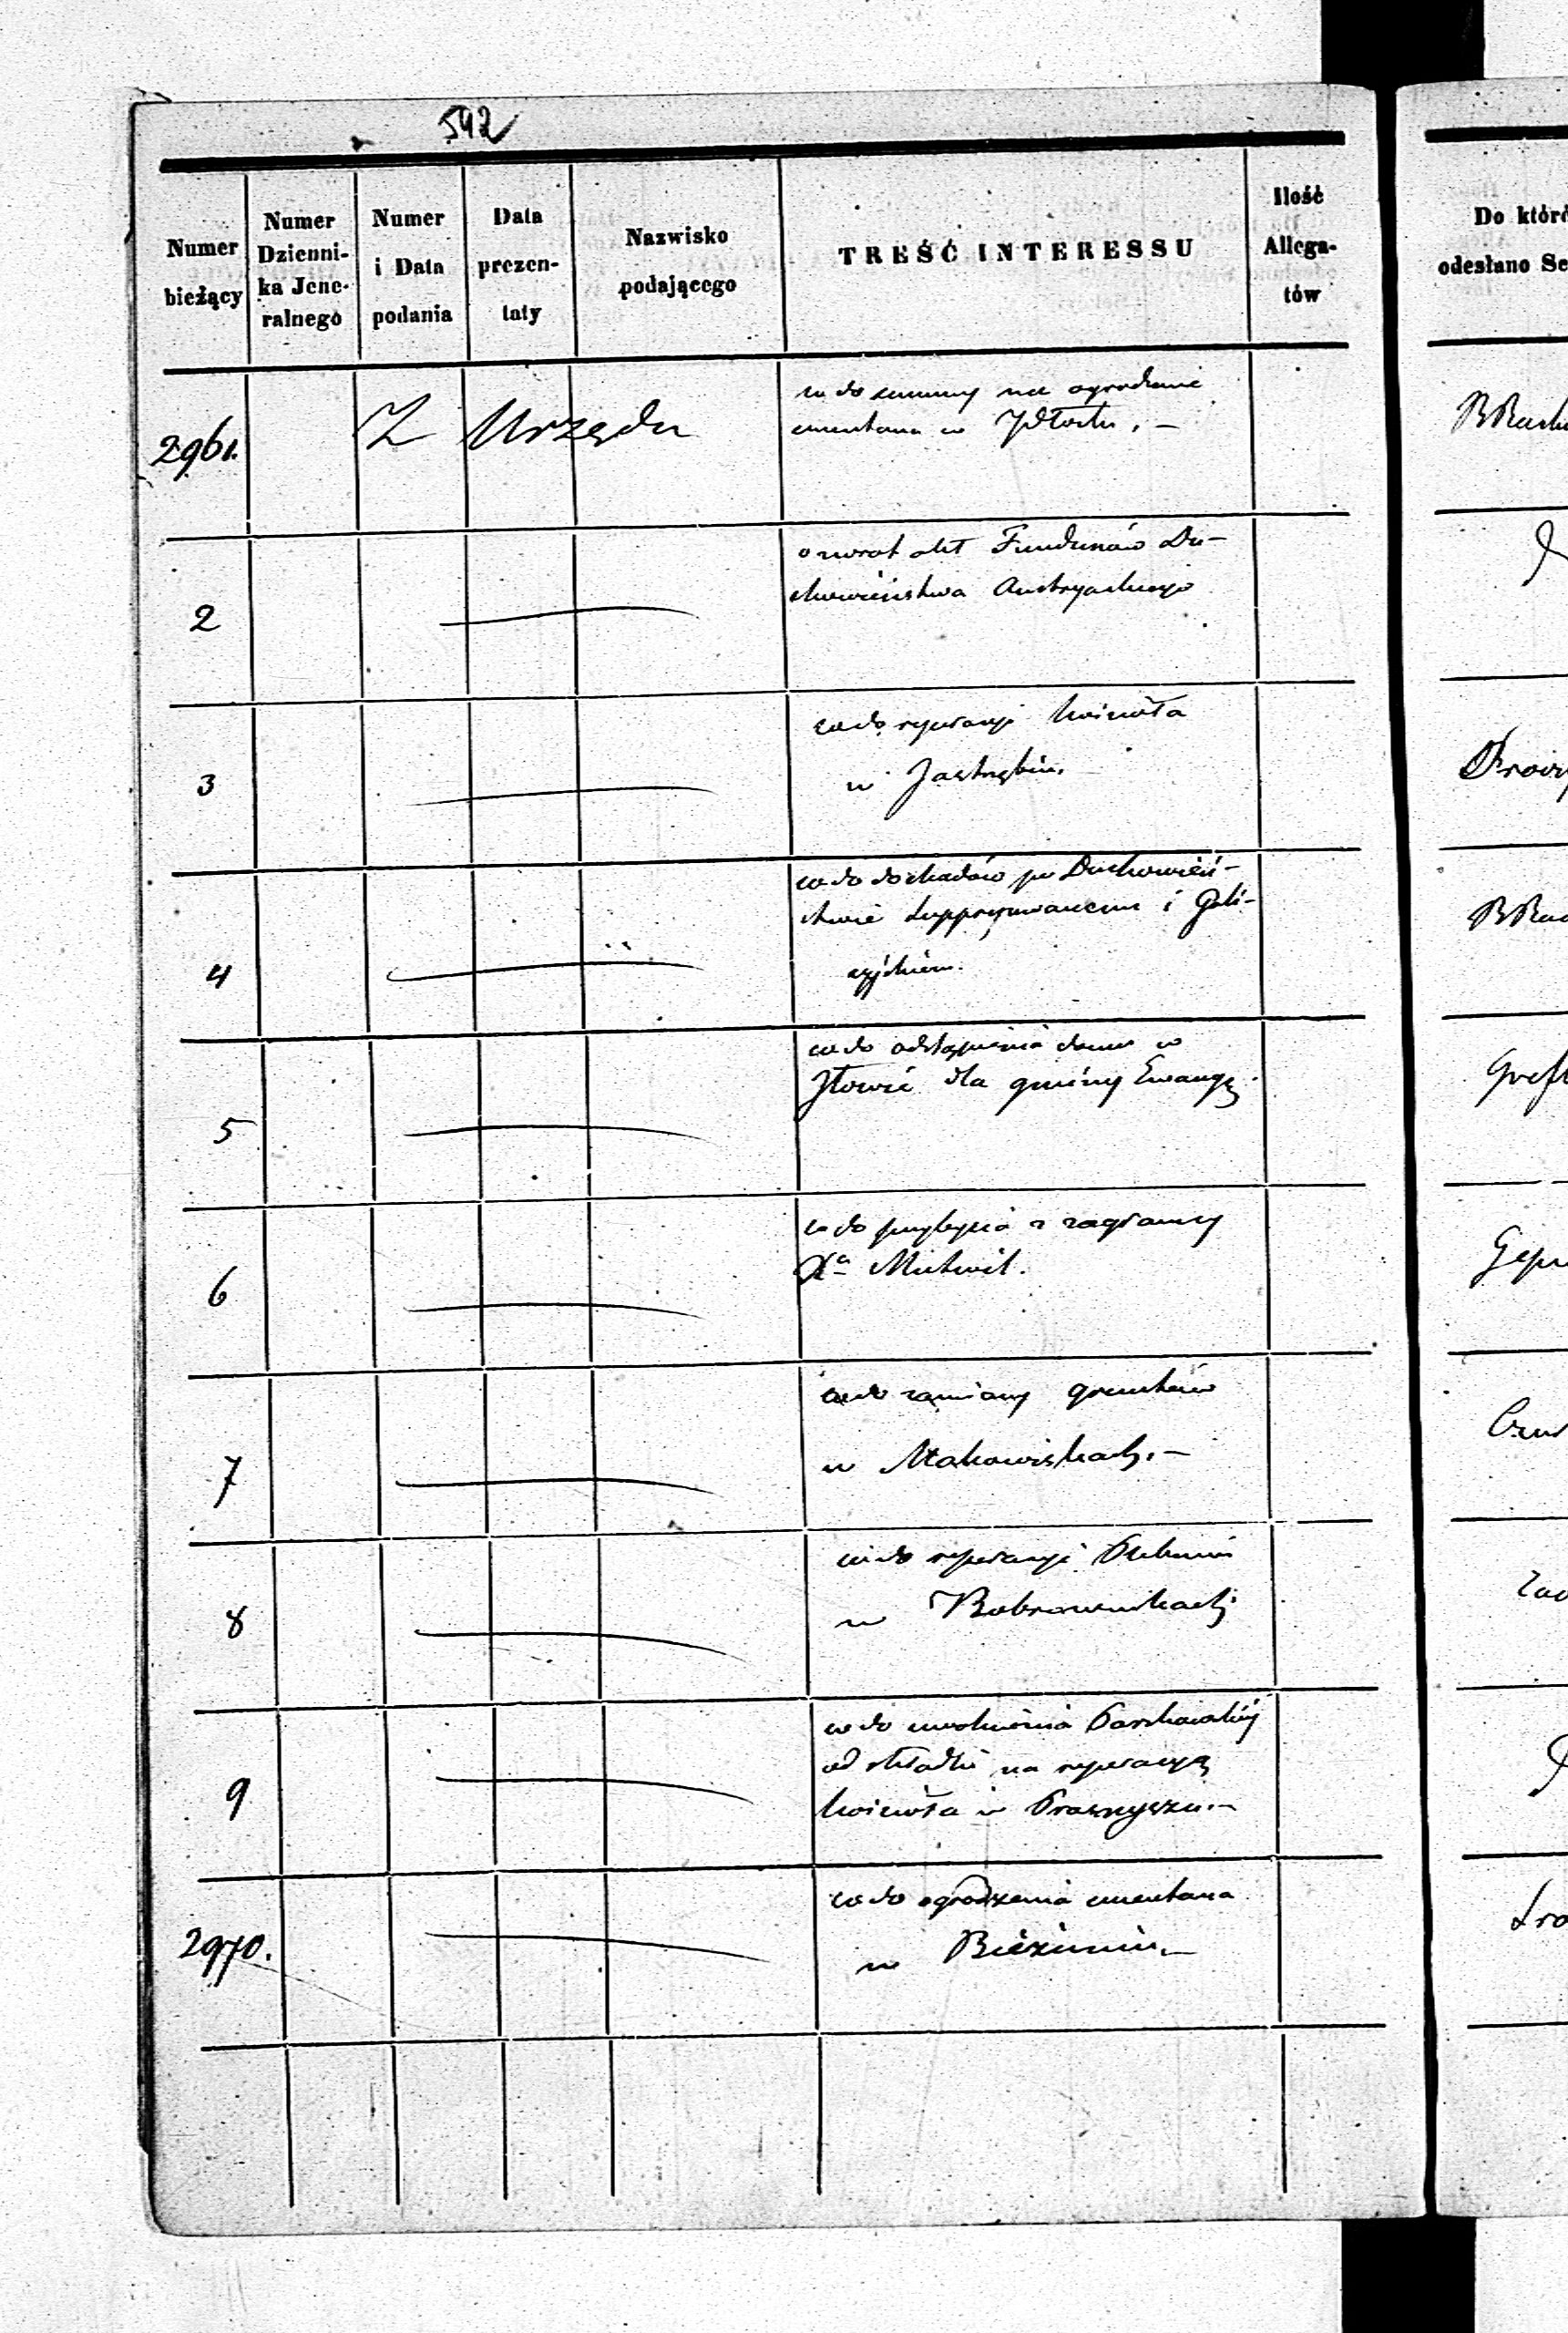 542
Numer bieżący
Numer Dzienni-ka Jene-ralnego
Numer i Data podania
Data prezen-taty
Nazwisko podającego
TREŚĆ INTERESSU
Ilość Allega-tów
Do któré
odesłano Se
2961.
Z Urzędu
co do summy na ogrodzenie
cmentarza w
2
o zwrot akt Funduszów Du-
chowieństwa Austryackiego
3
co do reperacyi kościoła
w Jastrzębiu.
4
co do dochodów po Duchowień-
stwie suppressowanem i Gali-
cyjskiem.
5
co do odstąpienia domu w
Iłowie dla gminy Ewang.
6
co do przybycia z zagranicy
Xa
7
co do zamiany gruntów
w Makowiskach. —
8
co do reperacyi Plebanii
w Bobrownikach
9
co do uwolnienia
od składki na reperacyą
kościoła w Prasnyszu. —
2970.
co do ogrodzenia cmentarza
w Bieżuniu. —